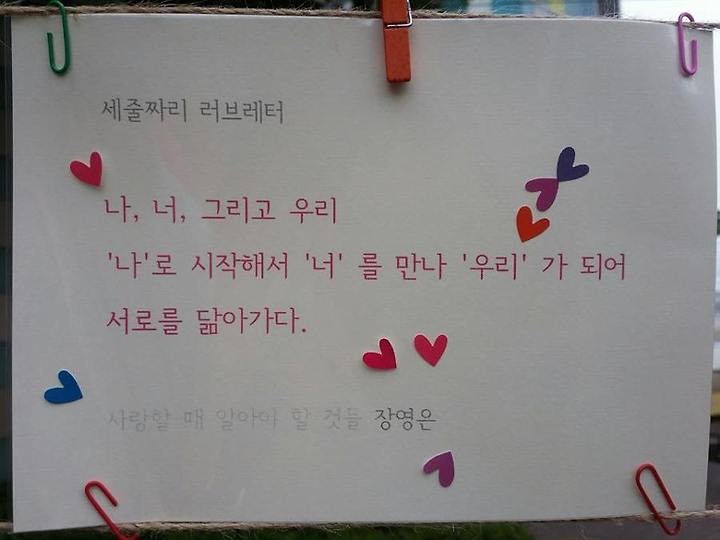 세줄짜리 러브레터
나, 너, 그리고 우리
'나'로 시작해서 '너' 를 만나 '우리' 가 되어
서로를 닮아가다.
사랑할 때 알아야 할 것들 장영은